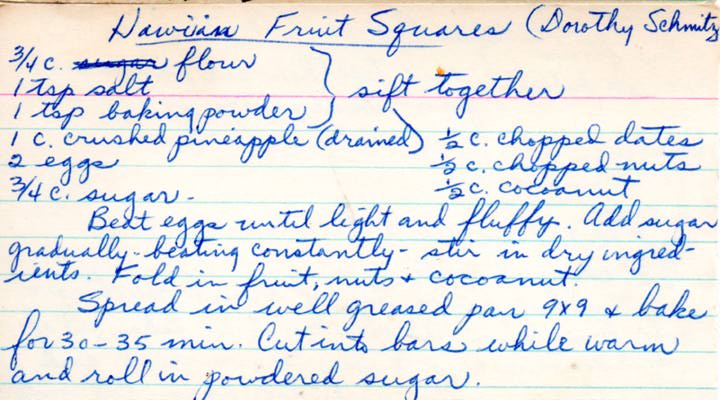 Hawiian Fruit Squares (Dorothy Schmitz
3/4 c. sugar flour
1 tsp salt } sift together
1 tsp baking powder
1 c. crushed pineapple (drained) 1/2 c. chopped dates
2 eggs 1/2 c. chopped nuts
3/4 c. sugar. 1/2 c. cocoanut
Beat eggs until light and fluffy. Add sugar
gradually-beating constantly- stir in dry ingred-
ients. Fold in fruit, nuts + cocoanut.
Spread in well greased pan 9x9 & bake
for 30-35 min. Cut into bars while warm
and roll in powdered sugar.